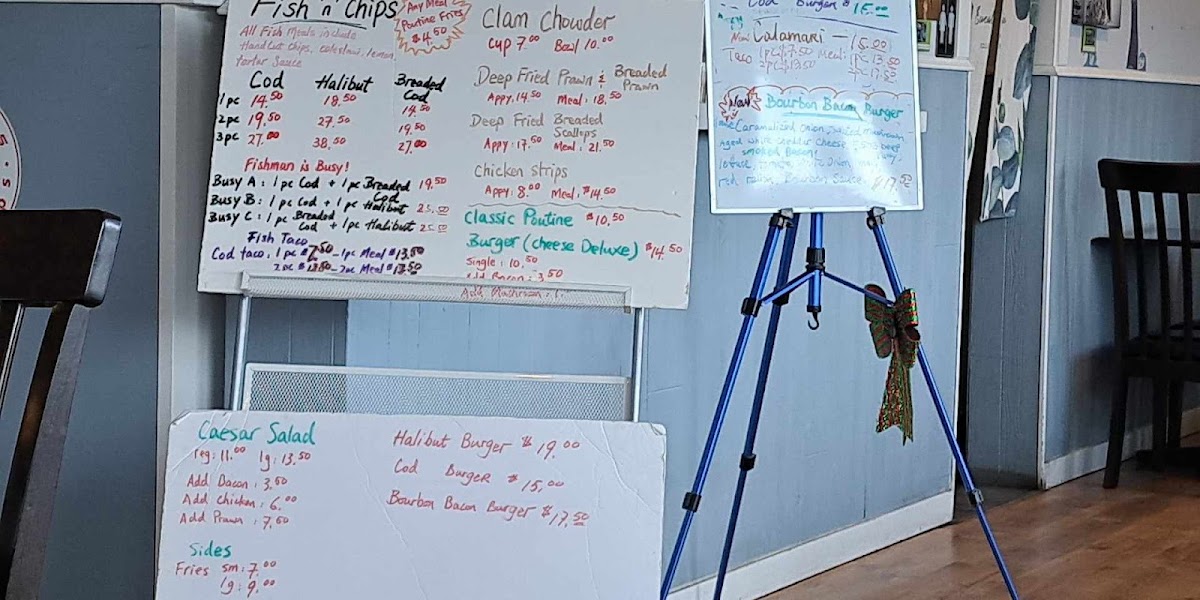 Fish 'n' Chips
Any Meal
Poutine Fries
$4.50
All Fish Meals include
Hand Cut Chips, coleslaw, lemon
tartar sauce
Cod Halibut Breaded Cod
1pc 14.50 18.50 14.50
2pc 19.50 27.50 19.50
3pc 27.00 38.50 27.00
Fishman is Busy!
Busy A: 1pc Cod + 1pc Breaded Cod 19.50
Busy B: 1pc Cod + 1pc Halibut 25.50
Busy C: 1pc Breaded Cod + 1pc Halibut 25.50
Fish Taco
Cod taco: 1pc $7.50 - 1pc Meal $13.50
2pc $13.50 - 2pc Meal
Clam Chowder
Cup 7.00 Bowl 10.00
Deep Fried Prawn & Breaded Prawn
Appy. 14.50 Meal: 18.50
Deep Fried Breaded Scallops
Appy: 17.50 Meal: 21.50
Chicken Strips
Appy: 8.00 Meal, $14.50
Classic Poutine $10.50
Burger (cheese Deluxe) $14.50
Single: 10.50
Add Bacon: 3.50
Add Mushroom
Cod Burger $15.00
New Calamari - 15.00
Taco 1pc $7.50 Meal: 1pc 13.50
2pc $13.50 2pc 17.50
New Bourbon Bacon Burger
Caramalized onion
aged white cheddar cheese beef
smoked Bacon
Bourbon Sauce $17.50
Caesar Salad
reg: 11.00 lg: 13.50
Add Bacon: 3.50
Add Chicken: 6.00
Add Prawn: 7.50
Sides
Fries sm: 7.00
lg: 9.00
Halibut Burger $19.00
Cod Burger $15.00
Bourbon Bacon Burger $17.50